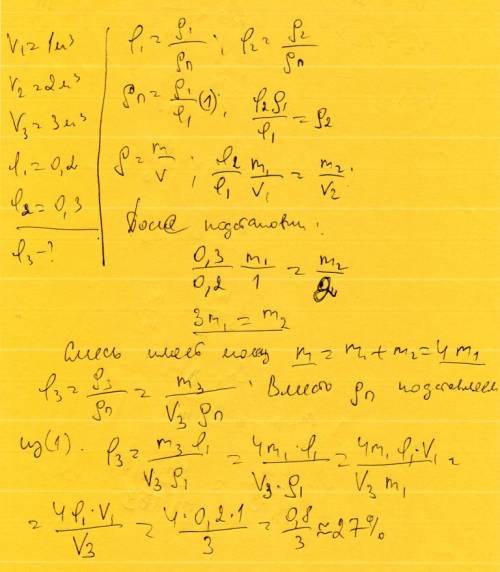 V₁=1м³
V₂=2м³
V₃=3м³
φ₁=0,2
φ₂=0,3
φ₃-?
φ₁=ρ₁/ρп; φ₂=ρ₂/ρп
ρп=ρ₁/φ₁(1); φ₂ρ₁/φ₁=ρ₂
ρ=m/V; φ₂/φ₁ m₁/V₁=m₂/V₂.
После подстановки:
0,3/0,2 m₁/1=m₂/2
3m₁=m₂
Смесь имеет массу m=m₁+m₂=4m₁
φ₃=ρ₃/ρп=m₃/V₃ρп. Вместо ρп подставляем
из(1). φ₃=m₃φ₁/V₃ρ₁=4m₁·φ₁/V₃·ρ₁=4m₁φ₁·V₁/V₃m₁=
=4φ₁·V₁/V₃=4·0,2·1/3=0,8/3≈27%